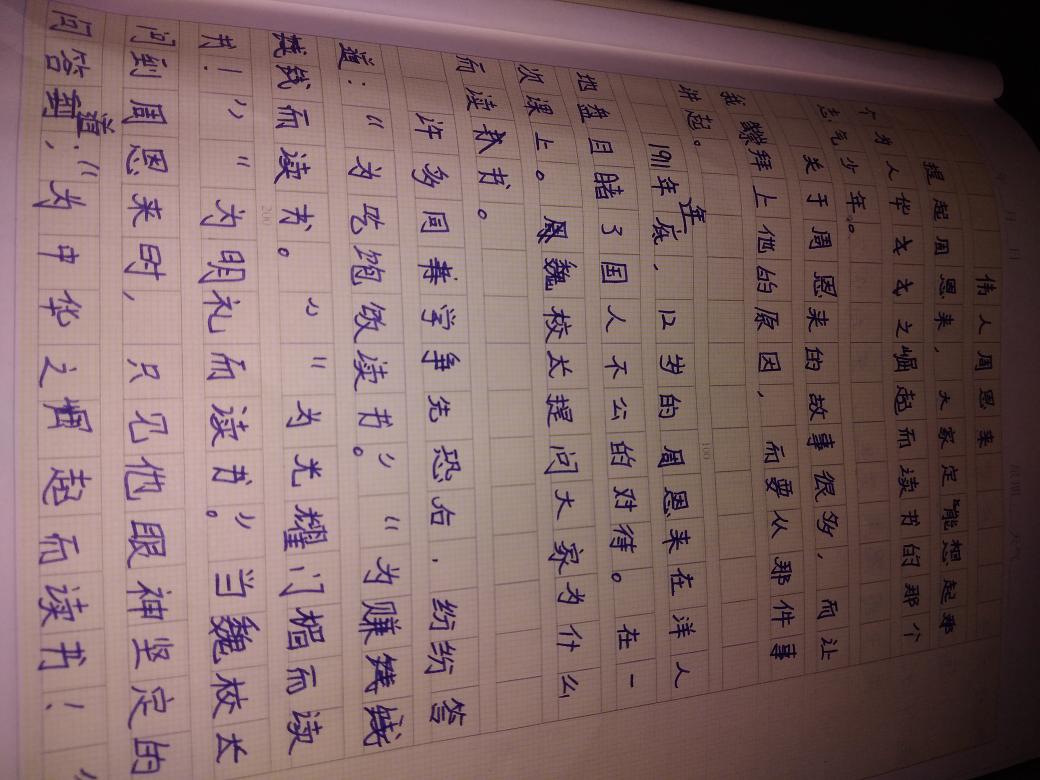 伟人周恩来
提起周恩来，大家定能想起那
个为人华之崛起而读书的那个
志气少年。
关于周恩来的故事很多，而让
我崇拜上他的原因，而要从那件事
讲起。
1911年底，12岁的周恩来在洋人
地盘目睹了国人不公的对待。在一
次课上。魏校长提问大家为什么
而读书。
许多同学争先恐后，纷纷答
道：“为吃饱饭读书。”“为赚钱
而读书。”“为光耀门楣而读
书！”“为明礼而读书。”当魏校长
问到周恩来时，只见他眼神坚定的
回答道：“为中华之崛起而读书！”